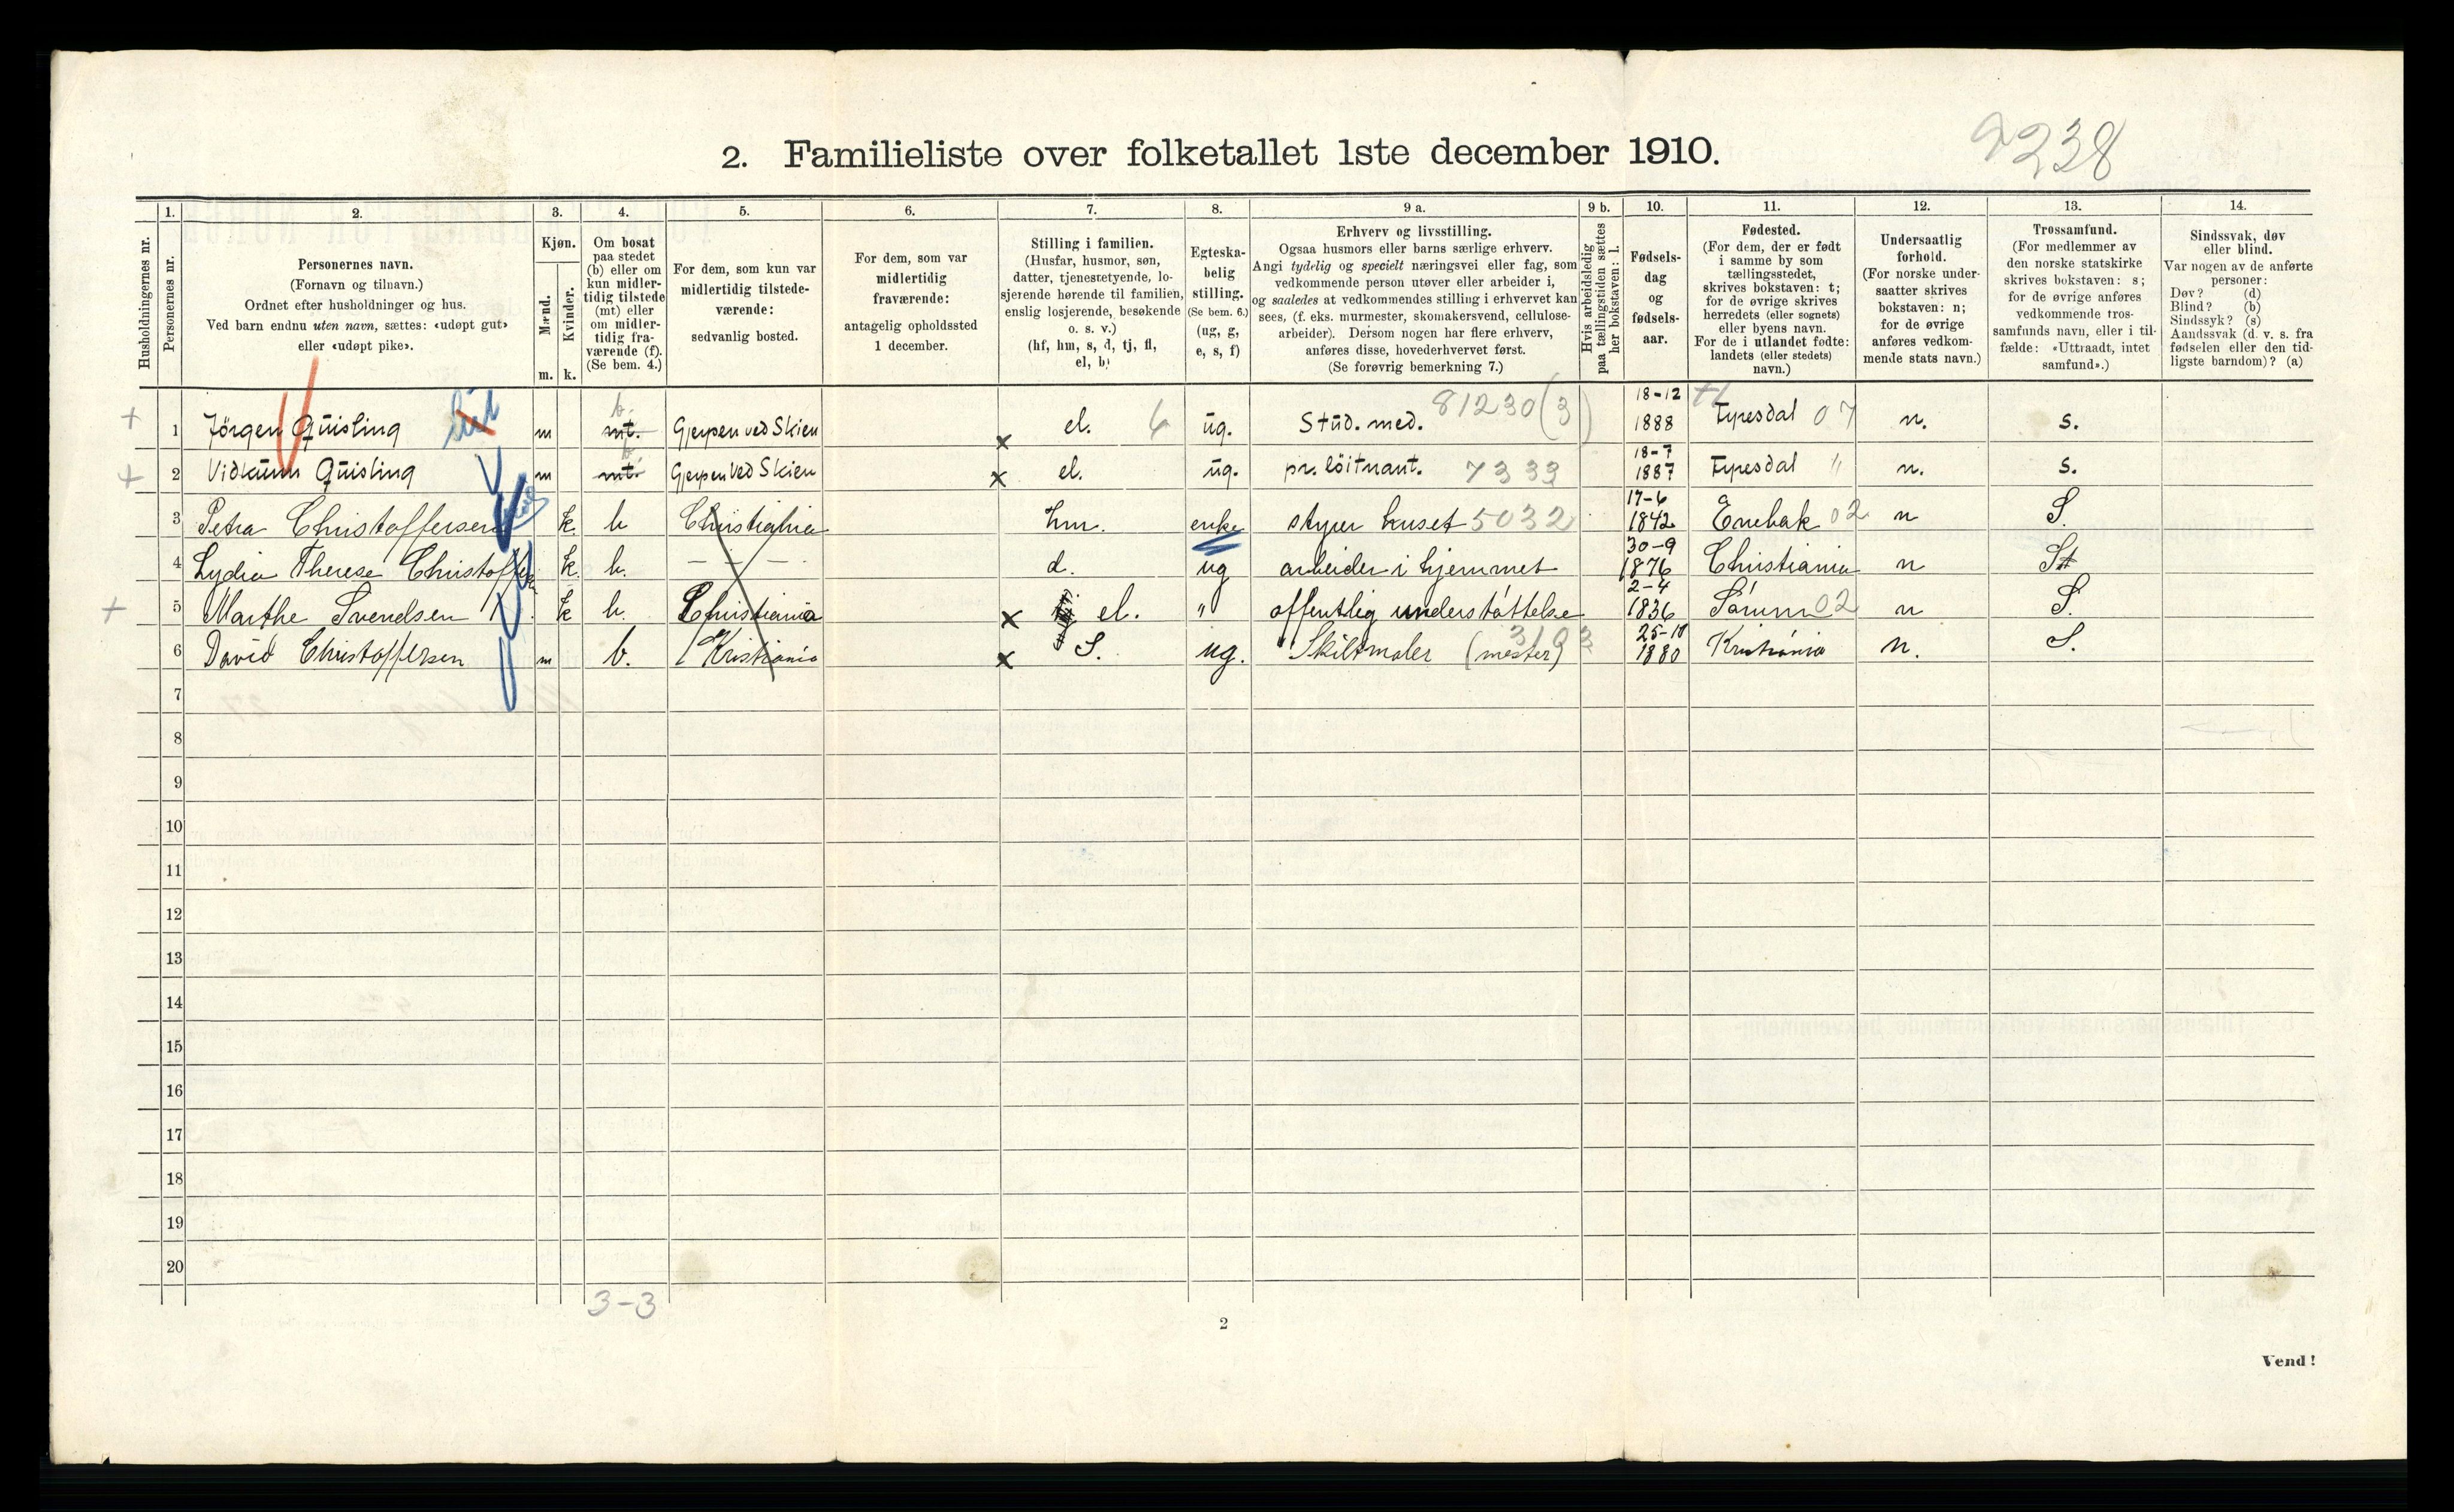 9238
2. Familieliste over folketallet 1ste december 1910.
Husholdningernes nr.
1.
Personernes nr.
2.
Personernes navn.
(Fornavn og tilnavn.)
Ordnet efter husholdninger og hus.
Ved barn endnu uten navn, sættes: «udøpt gut»
eller «udøpt pike».
3.
Kjøn.
Mænd.
Kvinder.
m. k.
4.
Om bosat
paa stedet
(b) eller om
kun midler-
tidig tilstede
(mt) eller
om midler-
tidig fra-
værende (f).
(Se bem. 4.)
5.
For dem, som kun var
midlertidig tilstede-
værende:
sedvanlig bosted.
6.
For dem, som var
midlertidig
fraværende:
antagelig opholdssted
1 december.
7.
Stilling i familien.
(Husfar, husmor, søn,
datter, tjenestetyende, lo-
sjerende hørende til familien,
enslig losjerende, besøkende
o. s. v.)
(hf, hm, s, d, tj, fl,
el, b)
8.
Egteska-
belig
stilling.
(Se bem. 6.)
(ug, g,
e, s, f)
9 a.
Erhverv og livsstilling.
Ogsaa husmors eller barns særlige erhverv.
Angi tydelig og specielt næringsvei eller fag, som
vedkommende person utøver eller arbeider i,
og saaledes at vedkommendes stilling i erhvervet kan
sees, (f. eks. murmester, skomakersvend, cellulose-
arbeider). Dersom nogen har flere erhverv,
anføres disse, hovederhvervet først.
(Se forøvrig bemerkning 7.)
9 b.
Hvis arbeidsledig
paa tællingstiden sættes
her bokstaven: l.
10.
Fødsels-
dag
og
fødsels-
aar.
11.
Fødested.
(For dem, der er født
i samme by som
tællingsstedet,
skrives bokstaven: t;
for de øvrige skrives
herredets (eller sognets)
eller byens navn.
For de i utlandet fødte:
landets (eller stedets)
navn.)
12.
Undersaatlig
forhold.
(For norske under-
saatter skrives
bokstaven: n;
for de øvrige
anføres vedkom-
mende stats navn.)
13.
Trossamfund.
(For medlemmer av
den norske statskirke
skrives bokstaven: s;
for de øvrige anføres
vedkommende tros-
samfunds navn, eller i til-
fælde: «Uttraadt, intet
samfund».)
14.
Sindssvak, døv
eller blind.
Var nogen av de anførte
personer:
Døv? (d)
Blind? (b)
Sindssyk? (s)
Aandssvak (d. v. s. fra
fødselen eller den tid-
ligste barndom)? (a)
+ 1 Jörgen Quisling m b. mt. Gjerpen ved Skien x el. 6 ug. Stud. med. 81230 (3) 18-12 1888 Fyresdal 07 n. s.
+ 2 Vidkunn Quisling m b. mt. Gjerpen ved Skien x el. ug. pr. löitnant. 7333 18-7 1887 Fyresdal " n. s.
3 Petra Christoffersen k. b Christiania hm. enke styrer huset 5032 17-6 1842 Enebak 02 n S.
4 Lydia Therese Christoffersen k. b. — — — d. ug arbeider i hjemmet 30-9 1876 Christiania n St
+ 5 Marthe Svendsen k b. Christiania x el. " offentlig understøttelse 2-4 1836 Sörum 02 n S.
6 David Christoffersen m b. Kristiania x S. ug. Skiltmaler (mester) 3193 25-10 1880 Kristiania n. S.
7
8
9
10
11
12
13
14
15
16
17
18
19
20
3-3
2
Vend!